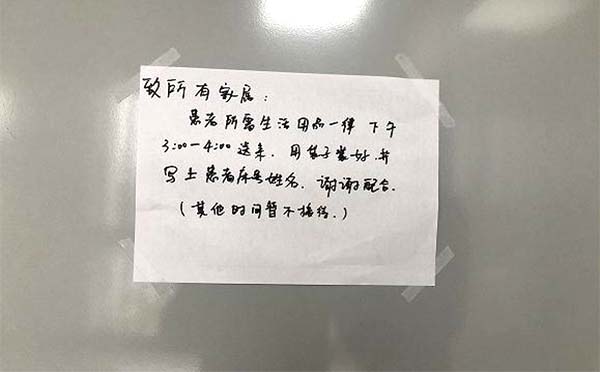 致所有家属：
患者所需生活用品一律下午
3:00-4:00送来，用袋子装好.并
写上患者床号姓名，谢谢配合.
（其他时间暂不接待.）